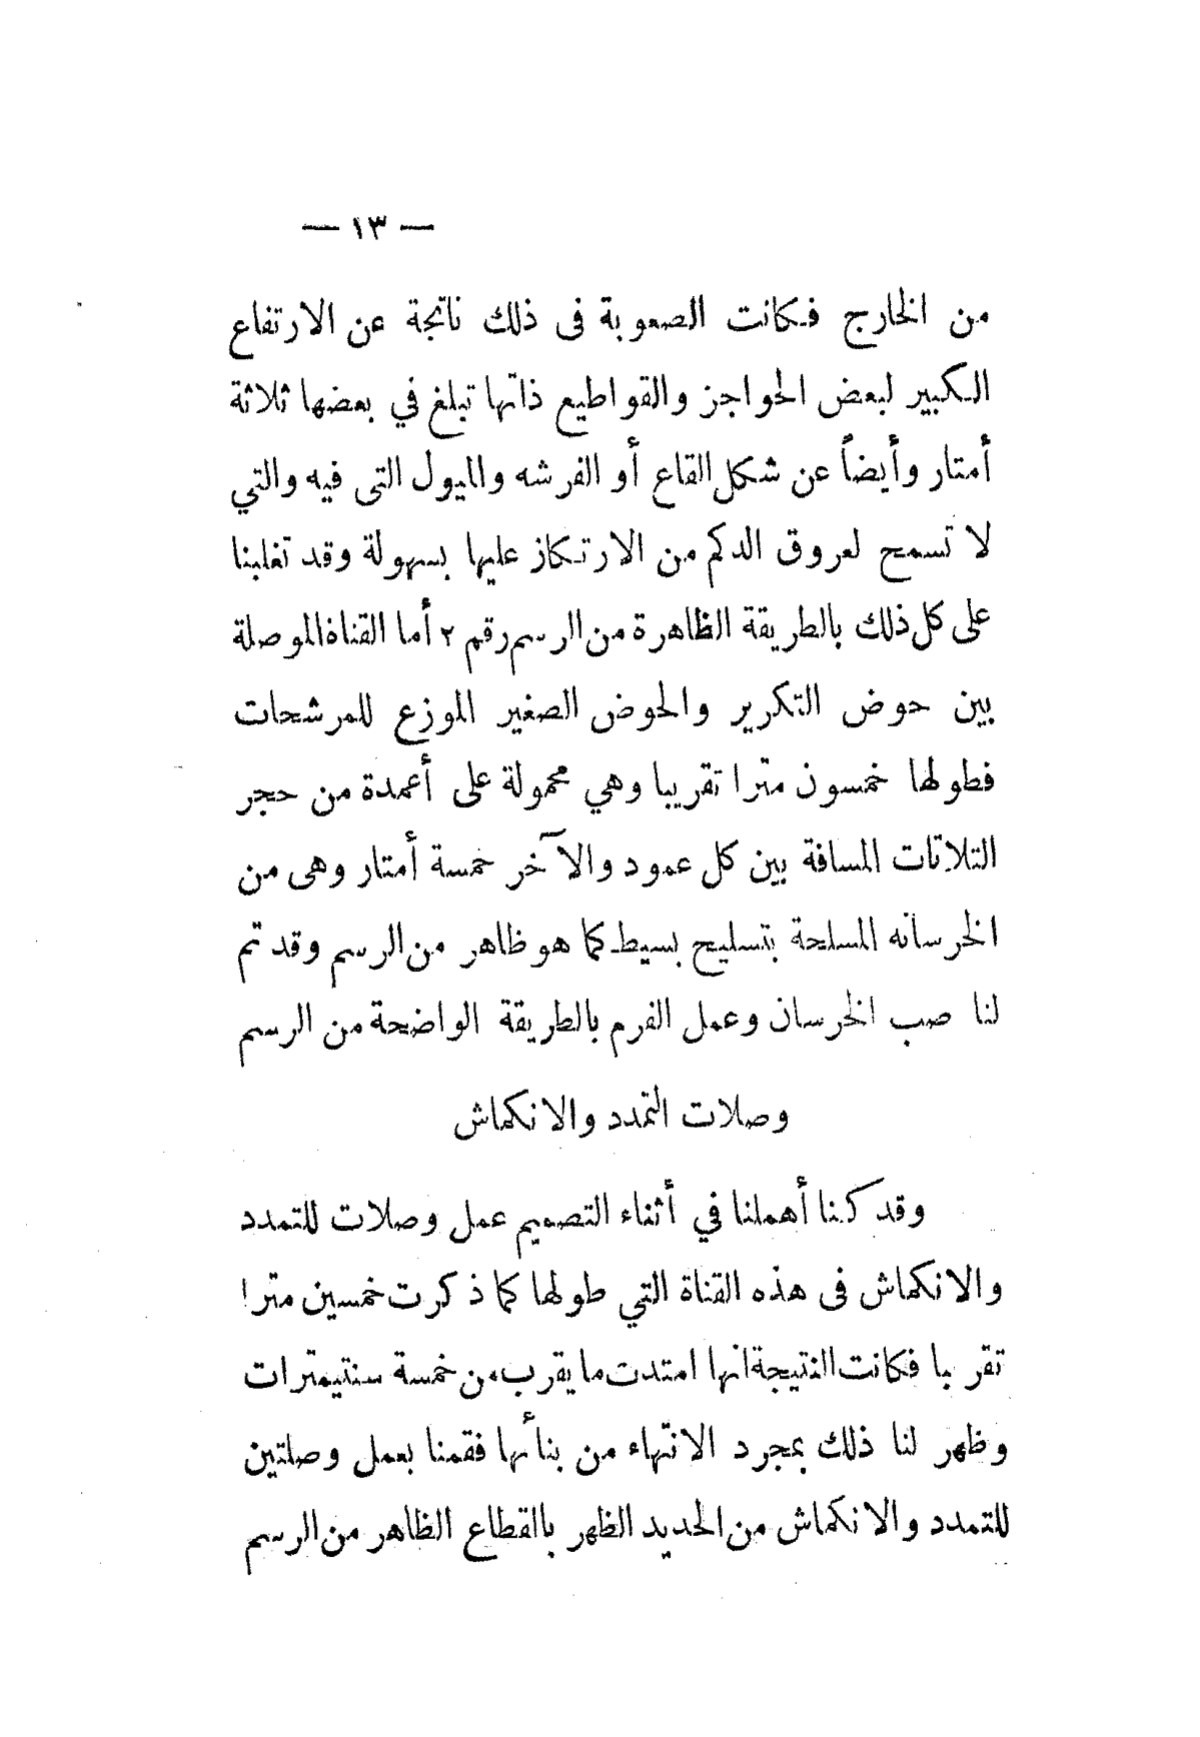 — ١٣ —
من الخارج فكانت الصعوبة فى ذلك ناتجة عن الارتفاع
الكبير لبعض الحواجز والقواطيع ذاتها تبلغ في بعضها ثلاثة
أمتار وأيضاً عن شكل القاع أو الفرشه والميول التى فيه والتي
لا تسمح لعروق الدكم من الارتكاز عليها بسهولة وقد تغلبنا
على كل ذلك بالطريقة الظاهرة من الرسم رقم ٢ أما القناة الموصلة
بين حوض التكرير والحوض الصغير الموزع للمرشحات
فطولها خمسون مترا تقريبا وهي محمولة على أعمدة من حجر
التلاتات المسافة بين كل عمود والآخر خمسة أمتار وهى من
الخرسانه المسلحة بتسليح بسيط كما هو ظاهر من الرسم وقد تم
لنا صب الخرسان وعمل الفرم بالطريقة الواضحة من الرسم
وصلات التمدد والانكماش
وقد كنا أهملنا في أثناء التصميم عمل وصلات للتمدد
والانكماش فى هذه القناة التي طولها كما ذكرت خمسين مترا
تقر با فكانت النتيجة انها امتدت ما يقرب من خمسة سنتيمترات
وظهر لنا ذلك بمجرد الانتهاء من بنائها فقمنا بعمل وصلتين
للتمدد والانكماش من الحديد الظهر بالقطاع الظاهر من الرسم